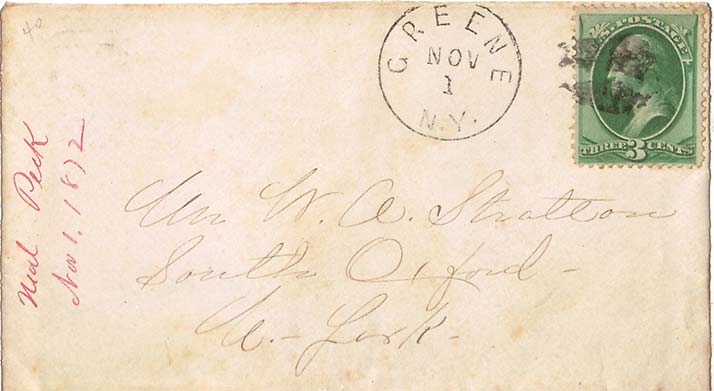 40
GREENE
NOV
1
N.Y.
U.S. POSTAGE
THREE 3 CENTS
Neal Peck
Nov 1, 1872
W. A. Stratton
South Oxford -
N - York -